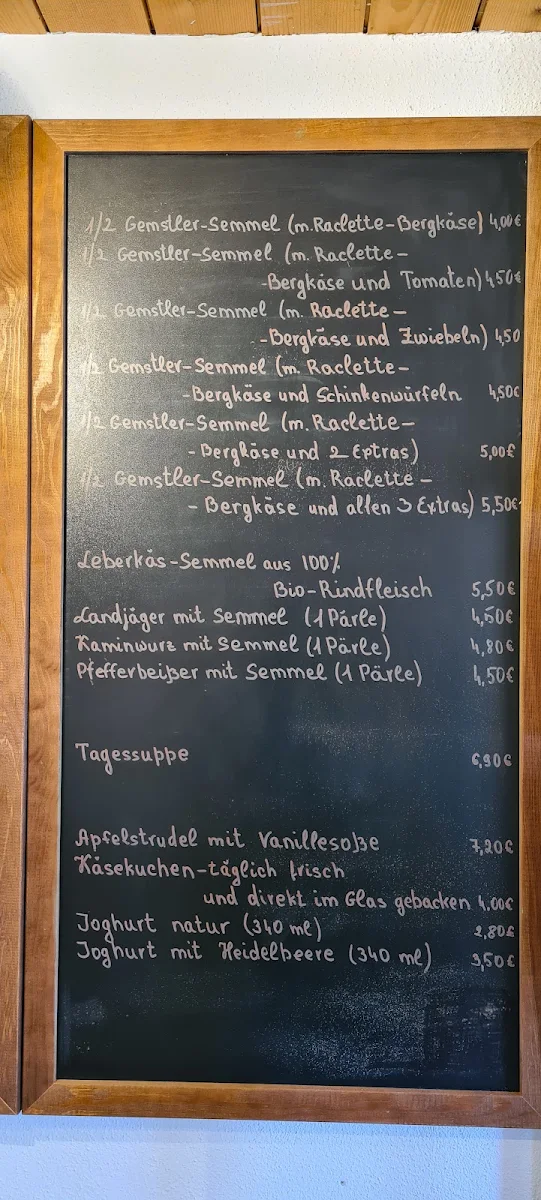 1/2 Gemstler-Semmel (m. Raclette-Bergkäse) 4,00€
1/2 Gemstler-Semmel (m. Raclette-
-Bergkäse und Tomaten) 4,50€
1/2 Gemstler-Semmel (m. Raclette-
-Bergkäse und Zwiebeln) 4,50
1/2 Gemstler-Semmel (m. Raclette-
-Bergkäse und Schinkenwürfeln 4,50€
1/2 Gemstler-Semmel (m. Raclette-
-Bergkäse und 2 Extras) 5,00€
1/2 Gemstler-Semmel (m. Raclette-
-Bergkäse und allen 3 Extras) 5,50€
Leberkäs-Semmel aus 100%
Bio-Rindfleisch 5,50€
Landjäger mit Semmel (1 Pärle) 4,50€
Kaminwurz mit Semmel (1 Pärle) 4,80€
Pfefferbeißer mit Semmel (1 Pärle) 4,50€
Tagessuppe 6,90€
Apfelstrudel mit Vanillesoße 7,20€
Käsekuchen-täglich frisch
und direkt im Glas gebacken 4.00€
Joghurt natur (340 ml) 2,80€
Joghurt mit Heidelbeere (340 ml) 3,50€